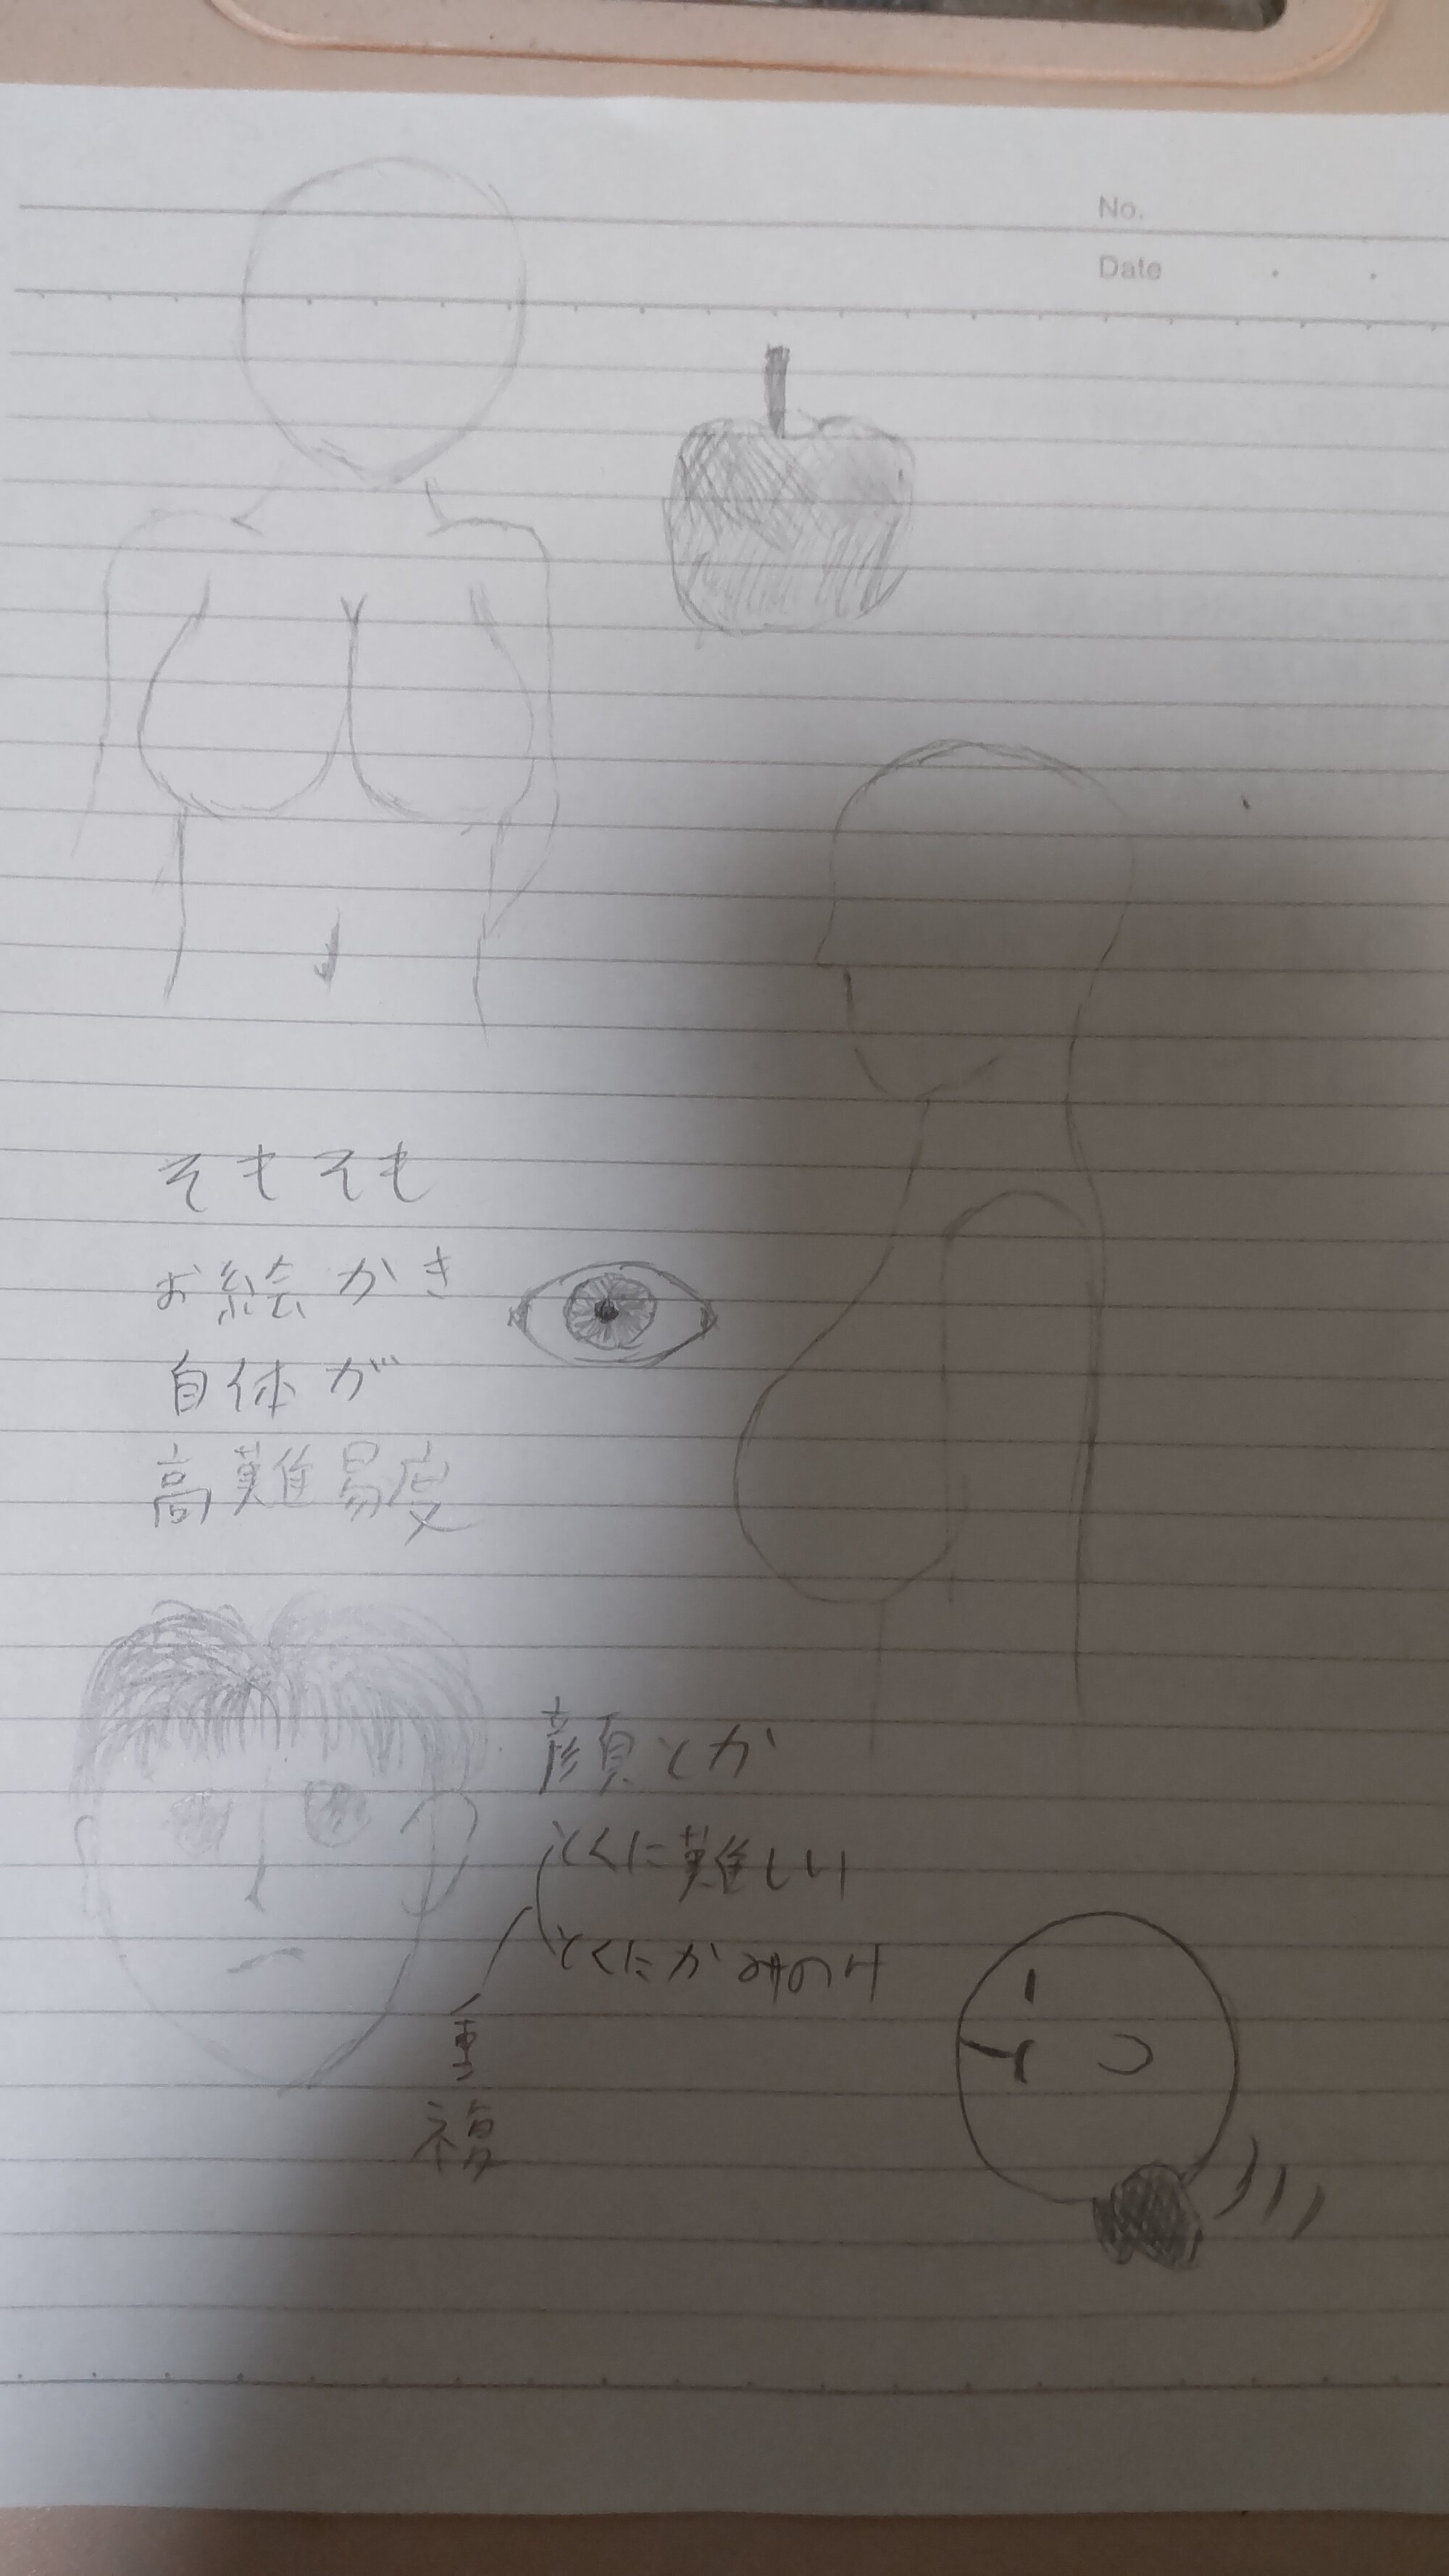 No.
Date
そもそも
お絵かき
自体が
高難易度
顔とか
とくに難しい
とくにかみのけ
重
複